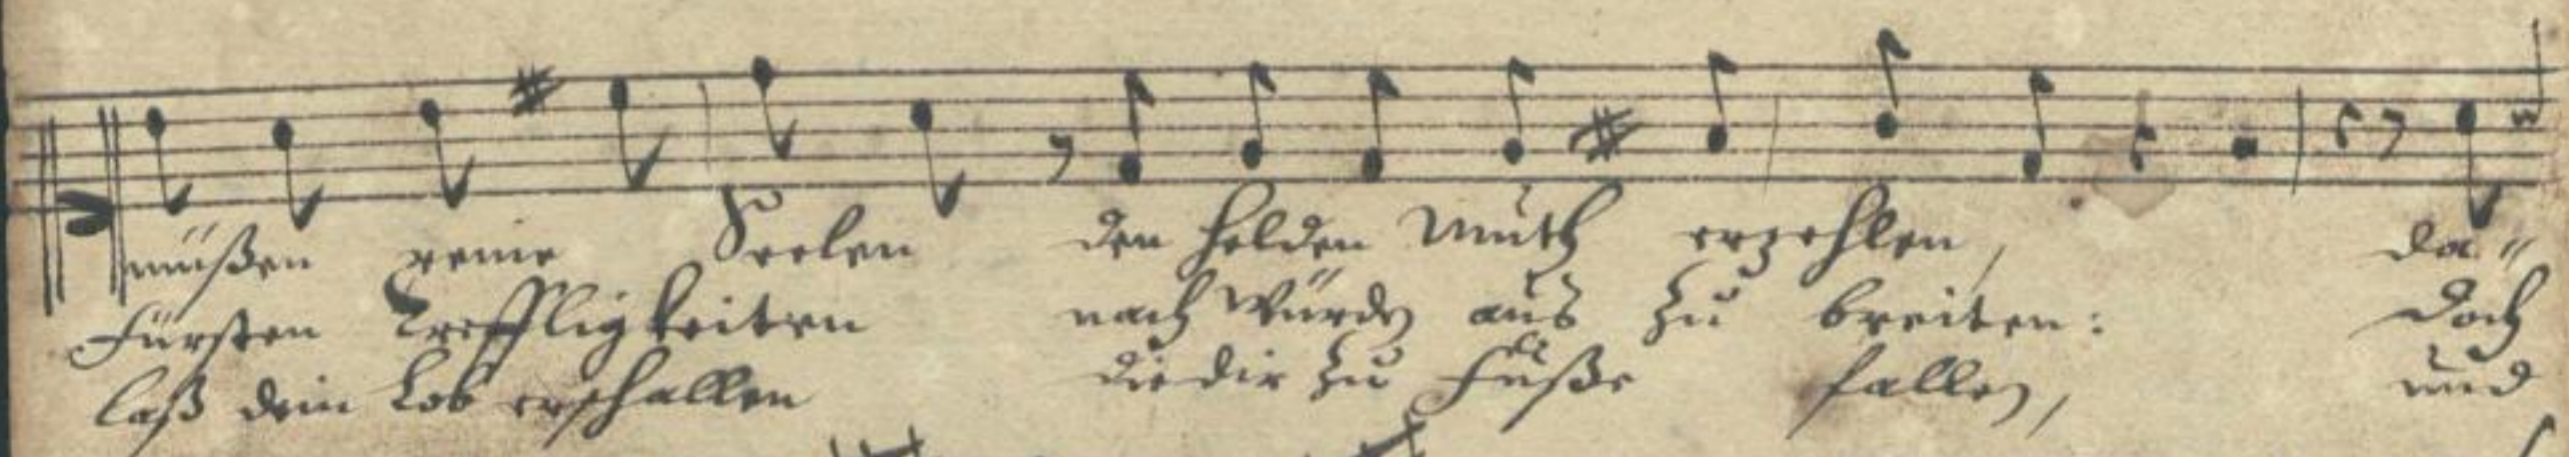 müßen reine Seelen den Helden Muth erzehlen, da"
Fürsten Treffligkeiten nach Würden aus zu breiten: doch
laß dein Lob erschallen die dir zu Fuße fallen, und